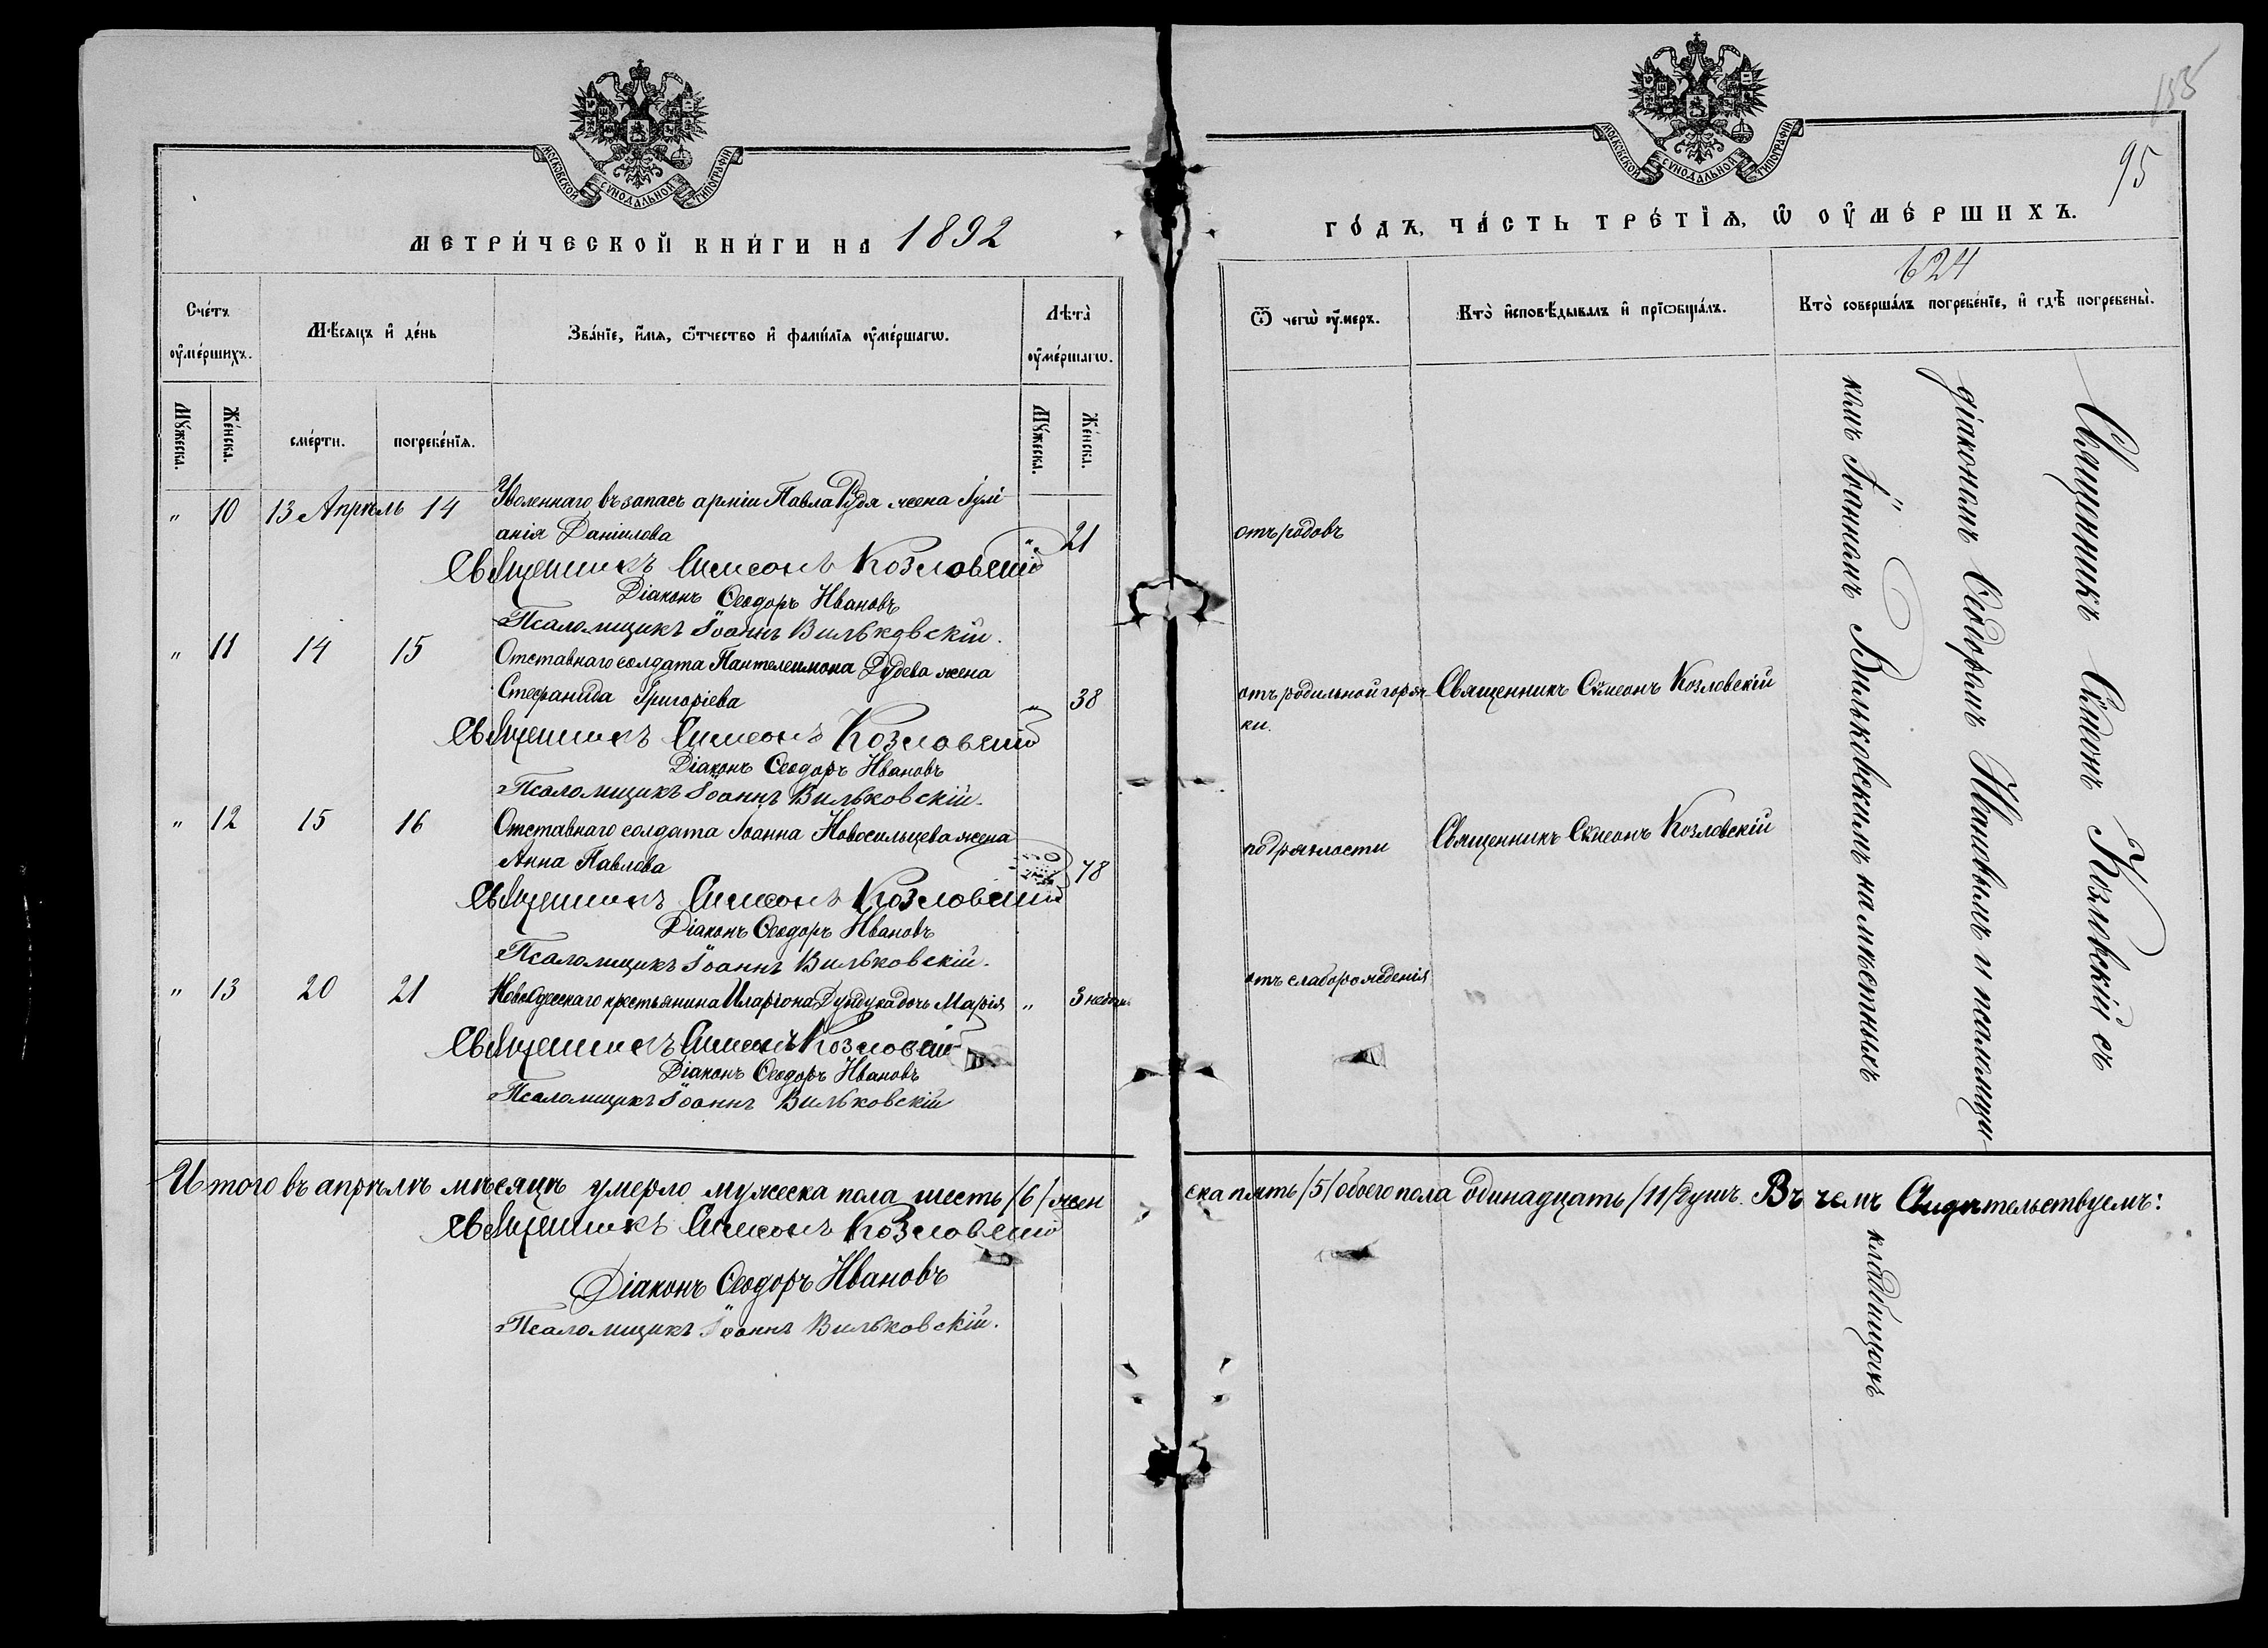 МОСКОВСКОЙ СУНОДАЛЬНОЙ ТИПОГРАФІИ
МЕТРИ́ЧЕСКОЙ КНИ́ГИ НА 1892
Сче́тъ ᲂу҆ме́ршихъ.
Мѣ́сяцъ и҆ де́нь
Зва́нїе, и҆́мѧ, ѻ҆́тчество и҆ фами́лїѧ ᲂу҆ме́ршагѡ.
Лѣ́та̀ ᲂу҆ме́ршагѡ.
Мꙋ́жеска.
Же́нска.
сме́рти.
погребе́нїѧ.
Мꙋ́жеска.
Же́нска.
" 10 13 Апрѣль 14 Уволеннаго въ запасъ арміи Павла Рудя жена Іулі-
анія Даніилова " 21
Священникъ Симеонъ Козловскій
Діаконъ Ѳеодоръ Ивановъ
Псаломщикъ Іоаннъ Вильковскій.
" 11 14 15 Отставнаго солдата Пантелеимона Дудева жена
Стефанида Григоріева " 38
Священникъ Симеонъ Козловскій
Діаконъ Ѳеодоръ Ивановъ
Псаломщикъ Іоаннъ Вильковскій.
" 12 15 16 Отставнаго солдата Іоанна Новосильцева жена
Анна Павлова 78
Священникъ Симеонъ Козловскій
Діаконъ Ѳеодоръ Ивановъ
Псаломщикъ Іоаннъ Вильковскій.
" 13 20 21 Новоодесскаго крестьянина Иларіона Дундука дочь Марія " 3 недѣли
Священникъ Симеонъ Козловскій
Діаконъ Ѳеодоръ Ивановъ
Псаломщикъ Іоаннъ Вильковскій
Итого въ апрѣлѣ мѣсяцѣ умерло мужеска пола шесть /6/ жен
Священникъ Симеонъ Козловскій
Діаконъ Ѳеодоръ Ивановъ
Псаломщикъ Іоаннъ Вильковскій.
95
МОСКОВСКОЙ СУНОДАЛЬНОЙ ТИПОГРАФІИ
ГО́ДЪ, ЧА́СТЬ ТРЕ́ТЇѦ, Ѡ҆ ОУ҆МЕ́РШИХЪ.
624
Ѿ чегѡ̀ ᲂу҆́меръ.
Кто̀ и҆сповѣ́дывалъ и҆ прїѡбща́лъ.
Кто̀ соверша́лъ погребе́нїе, и҆ гдѣ̀ погребены̀.
отъ родовъ
отъ родильной горяч-
ки.
Священникъ Сѵмеонъ Козловскій
по дряхлости
Священникъ Сѵмеонъ Козловскій
отъ слаборожденія
Священникъ Сѵмеонъ Козловскій съ
діакономъ Ѳеодоромъ Ивановымъ и псаломщи-
комъ Іоанномъ Вильковскимъ на мѣстныхъ
кладбищахъ
ска пять /5/ обоего пола одинадцать /11/ душъ. Въ чемъ Свидѣтельствуемъ: